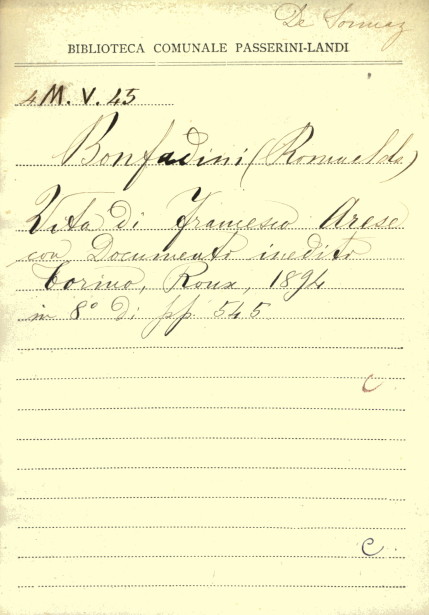 De Sonnaz
BIBLIOTECA COMUNALE PASSERINI-LANDI
4M. V. 45
Bonfadini (Romualdo)
Vita di Francesco Arese
con Documento inedito
Torino, Roux, 1894
in 8° di pp 545
C
C